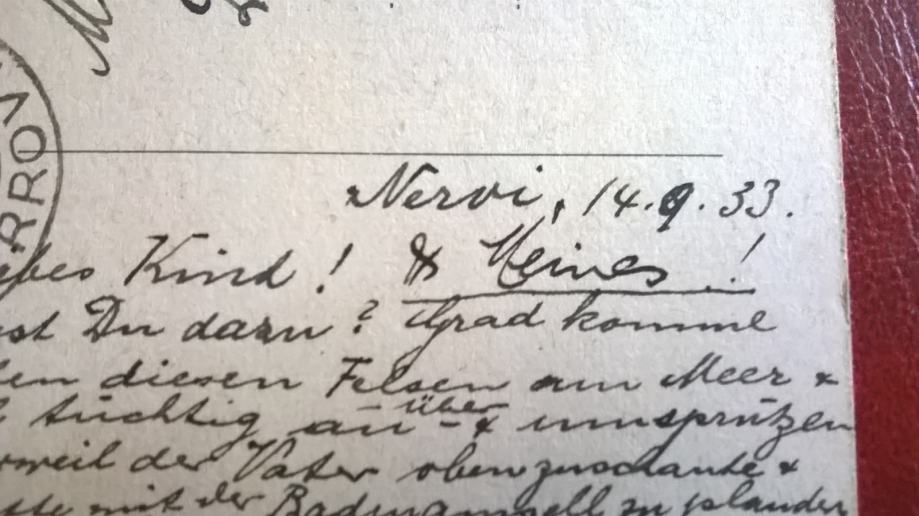 RROV
Nervi, 14.9.33.
Kind ! & Kleines !
Du dazu ? Grad komme
diesen Felsen am Meer &
tüchtig an- über & umspritzen
der Vater oben zuschaute &
mit der zu plauder